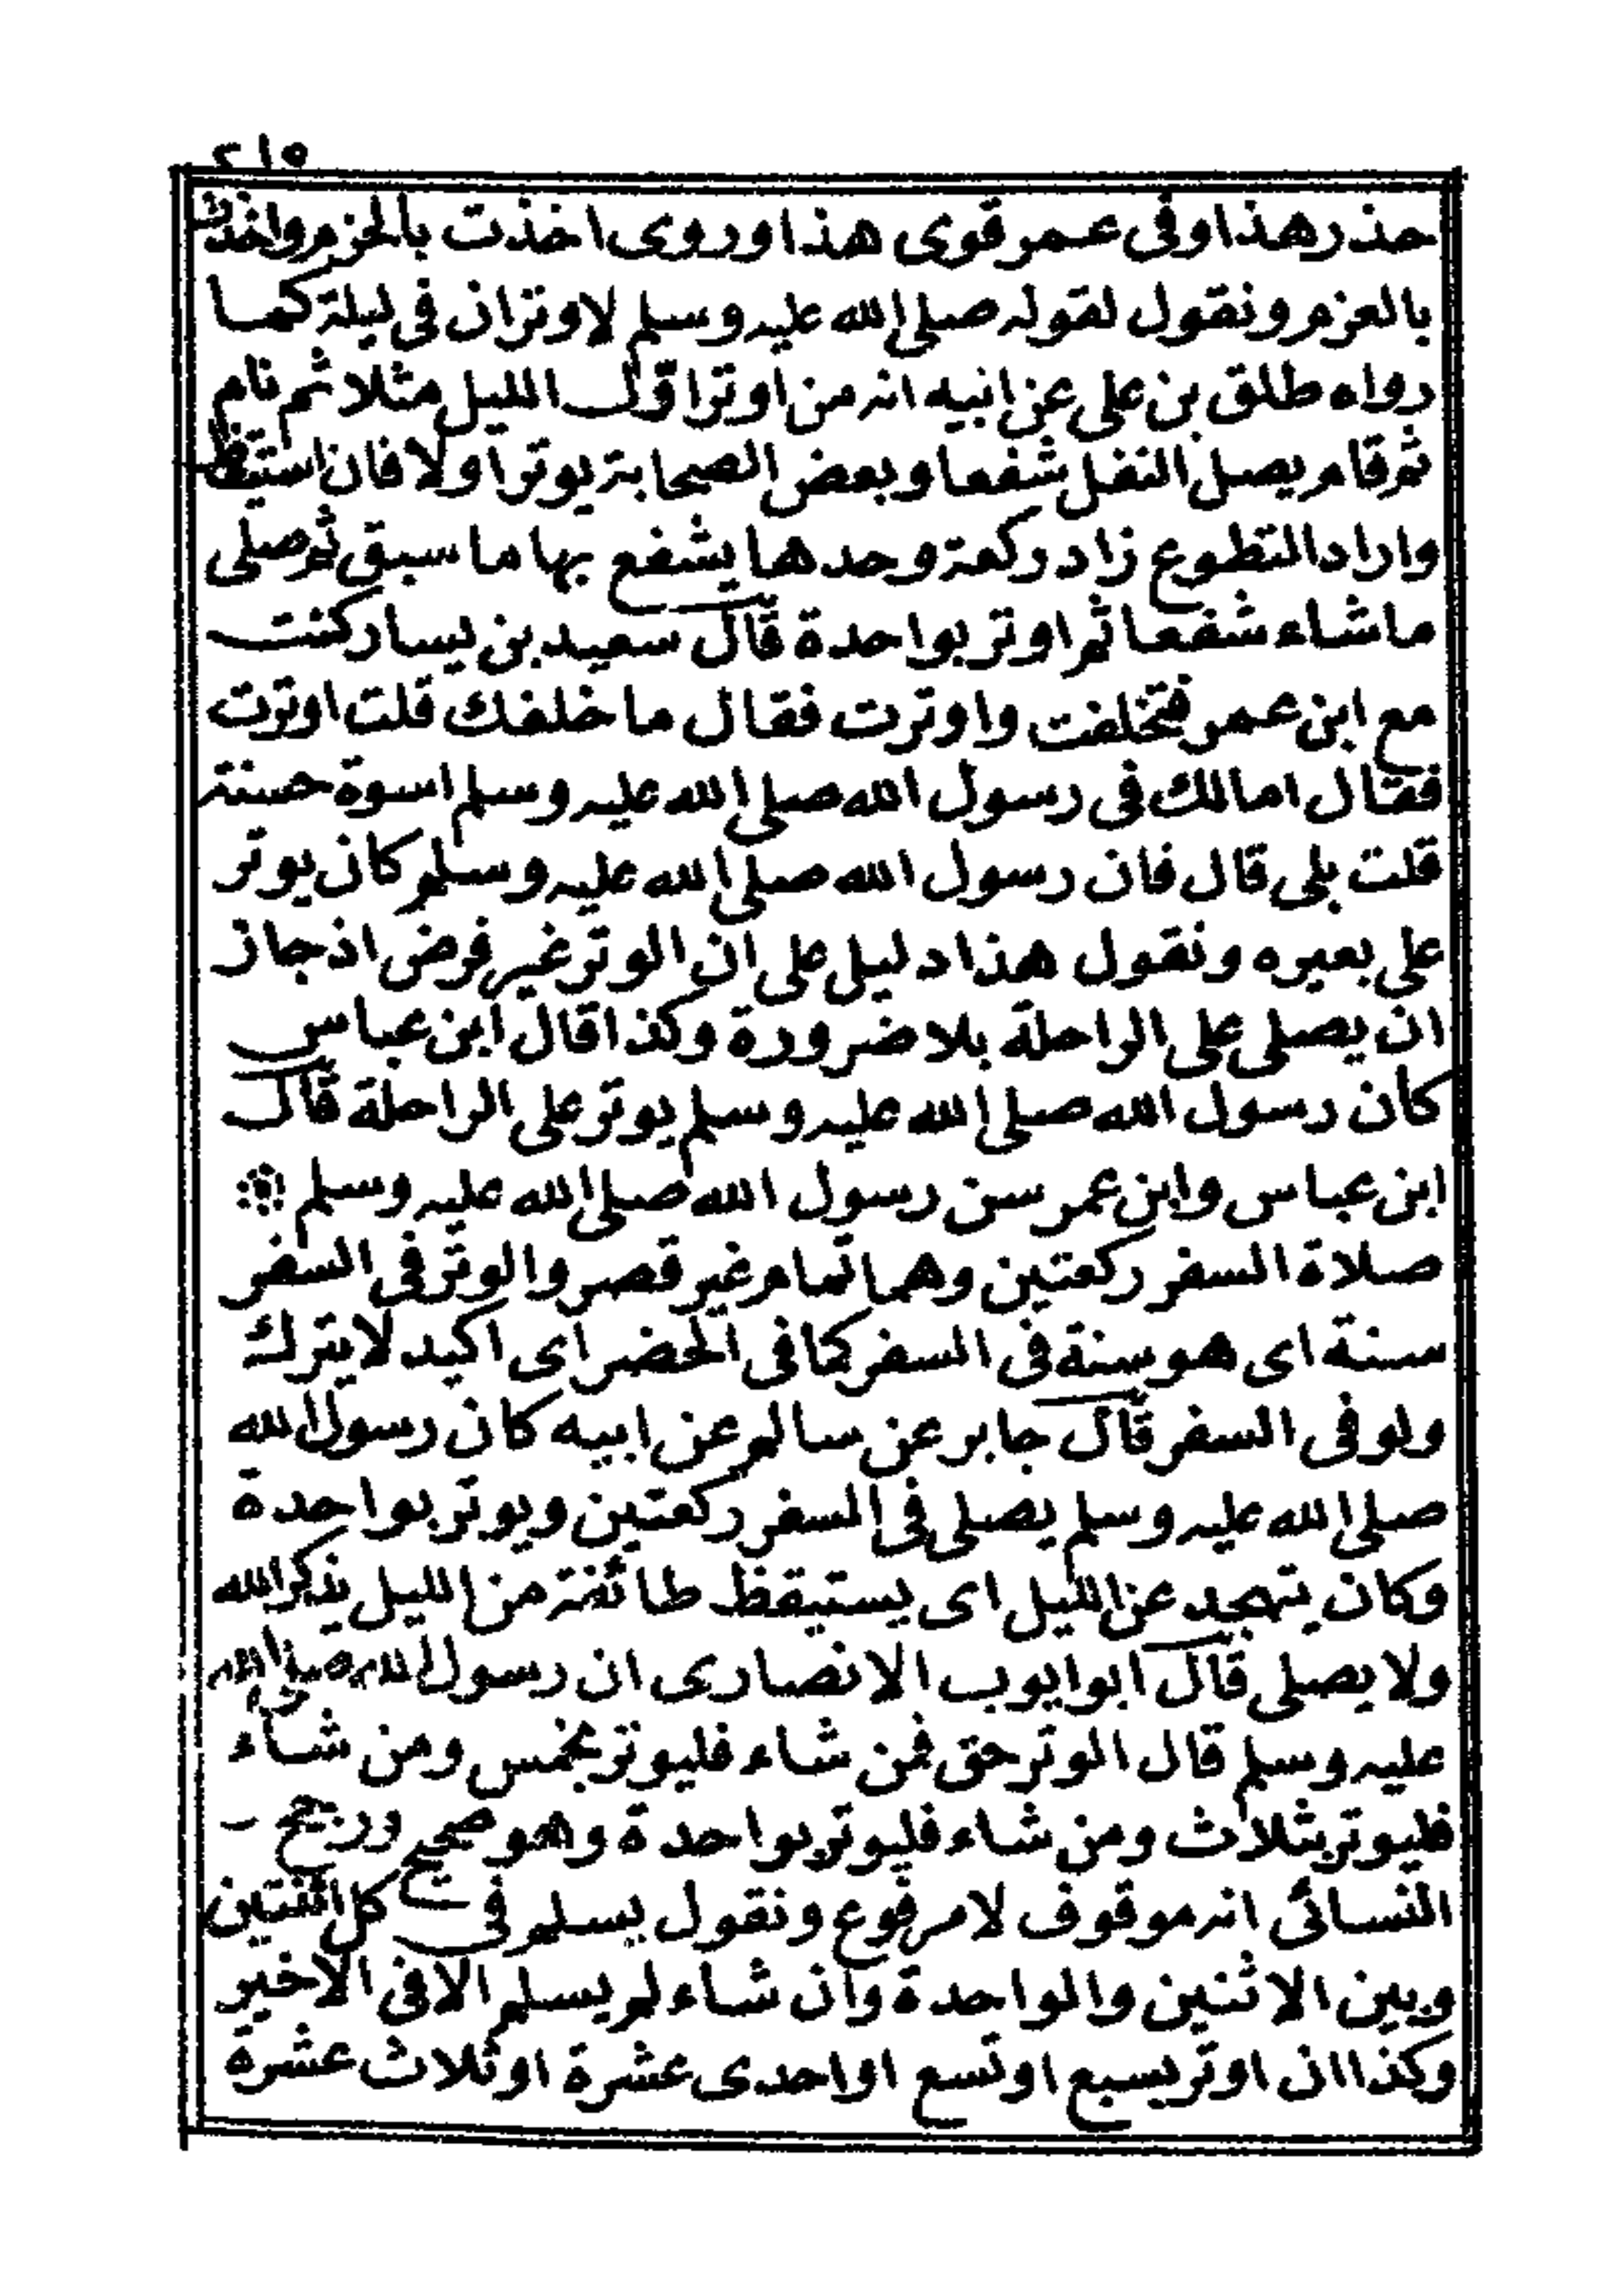 ٢١٥
حذر هذا وفى عمر قوى هذا وروى اخذت بالحزم واخذت
بالعزم ونقول لقوله صلى الله عليه وسلم لا وتران فى ليلة كما
رواه طلق بن على عن ابيه انه من اوتر اوّل الليل مثلا ثم نام
ثم قام يصل النفل شفعا وبعض الصحابة يوتر اولا فان استيقظ
واراد التطوع زاد ركعة وحدها يشفع بها ما سبق ثم صلى
ما شاء شفعا ثم اوتر بواحدة قال سعيد بن يسار كنت
مع ابن عمر فتخلفت واوترت فقال ما خلفك قلت اوترت
فقال امالك فى رسول الله صلى الله عليه وسلم اسوة حسنة
قلت بلى قال فان رسول الله صلى الله عليه وسلم كان يوتر
على بعيره ونقول هذا دليل على ان الوتر غير فرض اذ جاز
ان يصلى على الراحلة بلا ضرورة وكذا قال ابن عباس
كان رسول الله صلى الله عليه وسلم يوتر على الراحلة قال
ابن عباس وابن عمر سن رسول الله صلى الله عليه وسلم
صلاة السفر ركعتين وهما تمام غير قصر والوتر فى السفر
سنة اى هو سنة فى السفر كما فى الحضر اى اكيد لا يترك
ولو فى السفر قال جابر عن سالم عن ابيه كان رسول الله
صلى الله عليه وسلم يصلى فى السفر ركعتين ويوتر بواحدة
وكان يتهجد عن الليل اى يستيقظ طائفة من الليل يذكر الله
ولا يصلى قال ابو ايوب الانصارى ان رسول الله صلى الله
عليه وسلم قال الوتر حق فمن شاء فليوتر بخمس ومن شاء
فليوتر بثلاث ومن شاء فليوتر بواحدة وهو صحيح ورجح
النسائى انه موقوف لا مرفوع ونقول يسلم فى كل اثنتين
وبين الاثنين والواحدة وان شاء لم يسلم الا فى الاخير
وكذا ان اوتر بسبع او تسع او احدى عشرة او ثلاث عشرة